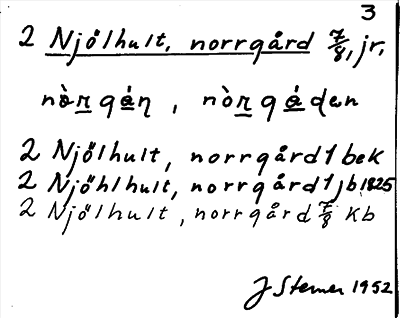 3
2 Njölhult, norrgård 7/8, jr,
nòrgån, nòrgåden
2 Njölhult, norrgård 1 bek
2 Njöhlhult, norrgård 1 jb 1825
2 Njölhult, norrgård 7/8 kb
J Sterner 1952